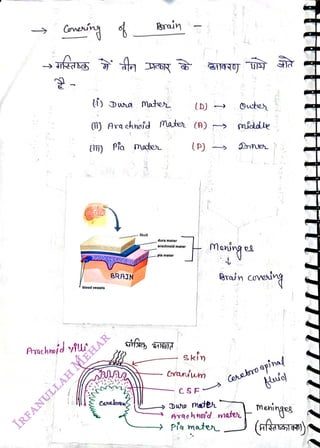 → Covering of Brain -
→ मस्तिष्क में तीन प्रकार के आवरण पाये जाते
है -
(i) Dura Mater (D) → Outer
(ii) Arachnoid Mater (A) → middle
(iii) Pia mater (P) → Inner
Skull
dura mater
arachnoid mater
pia mater
BRAIN
blood vessels
Meninges
↓
Brain covering
Arachnoid villi
Skin
Cranium
CSF → Cerebrospinal
fluid
Cerebrum
→ Dura mater
→ Arachnoid mater
→ Pia mater
Meninges
(मस्तिष्कावरण)
IRFANULLAH MEHAR